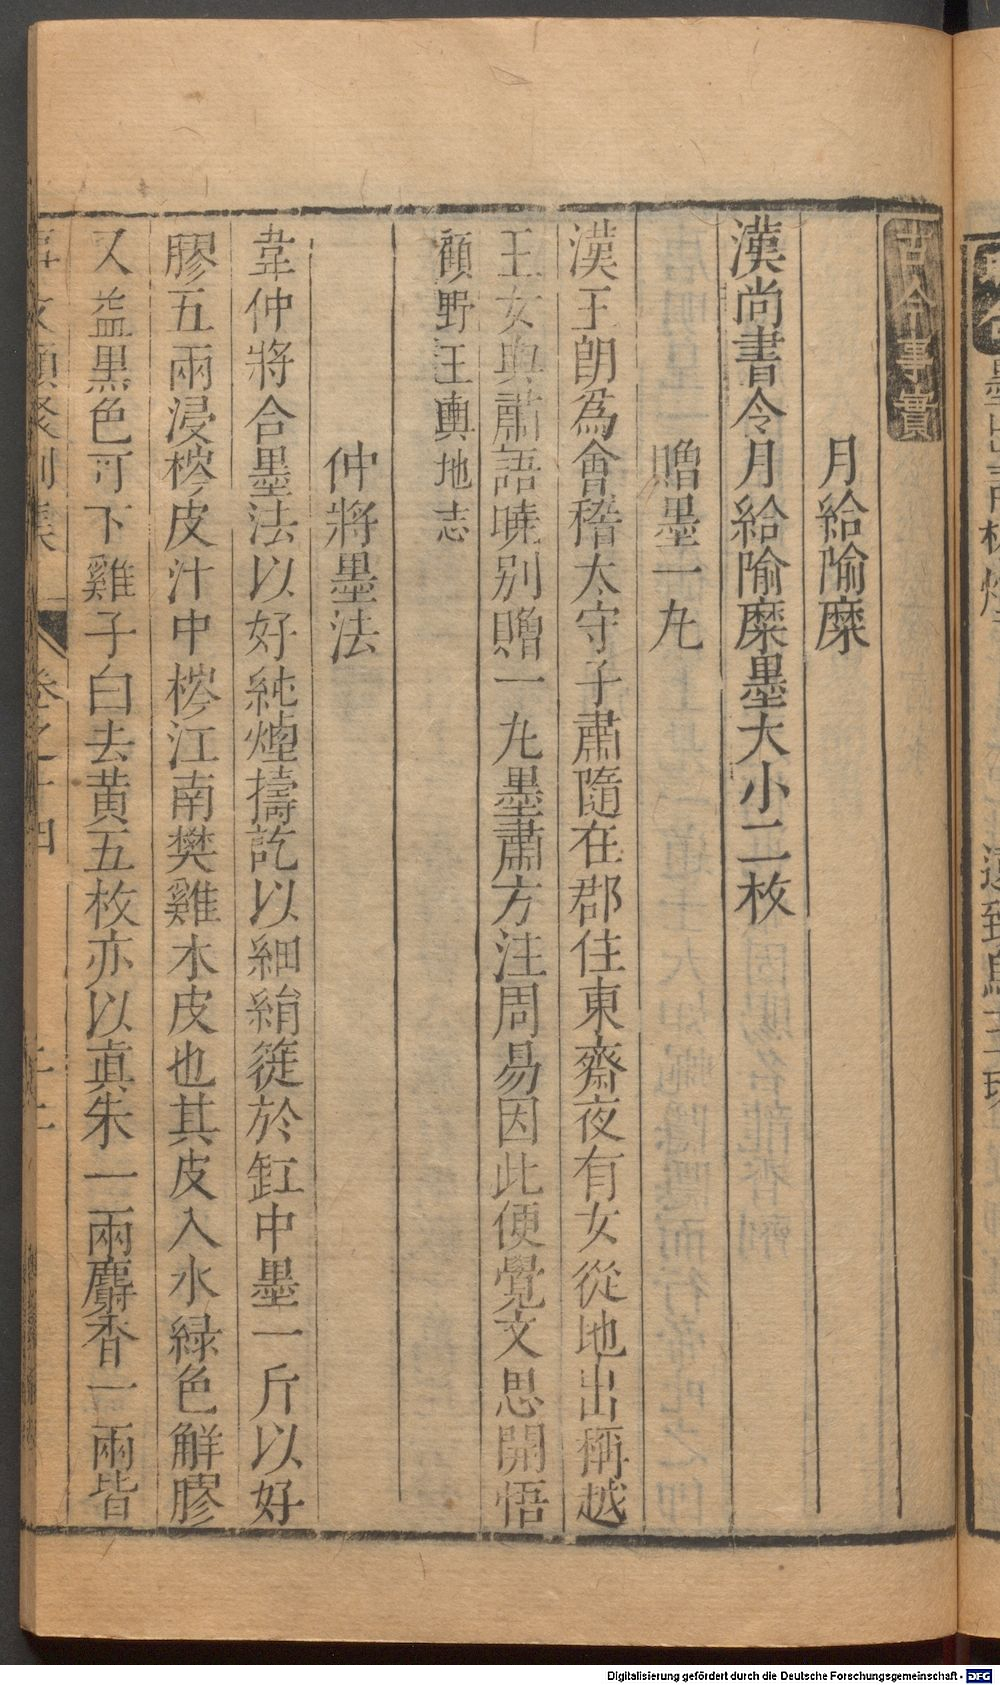 古今事實
月給隃糜
漢尚書令月給隃糜墨大小二枚
贈墨一九
漢王朗爲會稽太守子肅隨在郡住東齋夜有女從地出稱越
王女與肅語曉别贈一九墨肅方注周易因此便覺文思開悟
顧野王輿地志
仲將墨法
韋仲將合墨法以好純煙擣訖以細絹簁於缸中墨一斤以好
膠五兩浸梣皮汁中梣江南樊雞木皮也其皮入水緑色解膠
又益黒色可下雞子白去黄五枚亦以真朱一兩麝香一兩皆
卷之十四
Digitalisierung gefördert durch die Deutsche Forschungsgemeinschaft - DFG